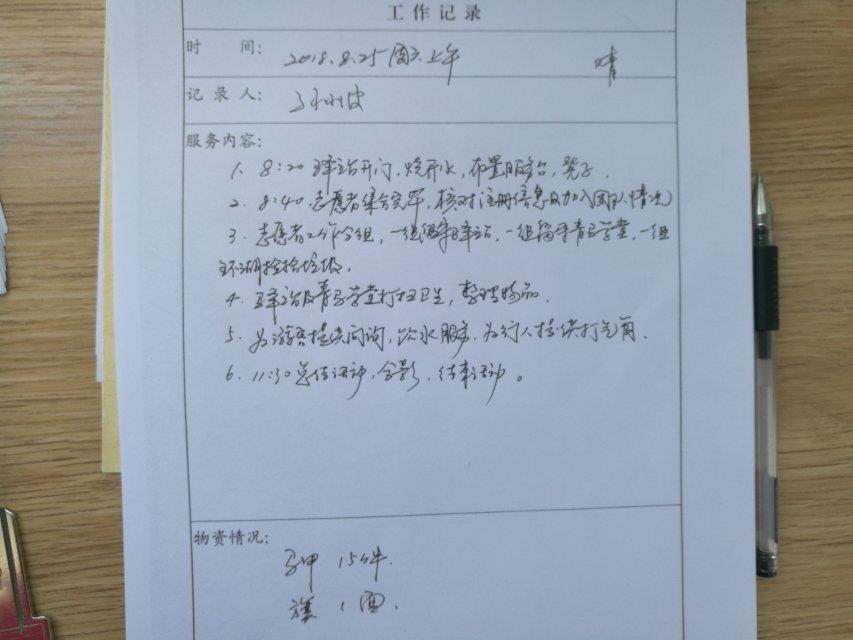 工作记录
时 间: 2018.8.25 周六上午 晴
记录人:
服务内容:
1. 8:20 驿站开门,烧开水,布置服务台,凳子.
2. 8:40 志愿者集合完毕,核对注册信息及加入团队情况
3. 志愿者工作分组,一组留守驿站,一组留守青马学堂,一组
环湖捡拾垃圾.
4. 驿站及青马学堂打扫卫生,整理物品.
5. 为游客提供问询,饮水服务,为行人提供打气筒.
6. 11:30 总结活动,合影,结束活动。
物资情况:
马甲 15件.
旗 1面.